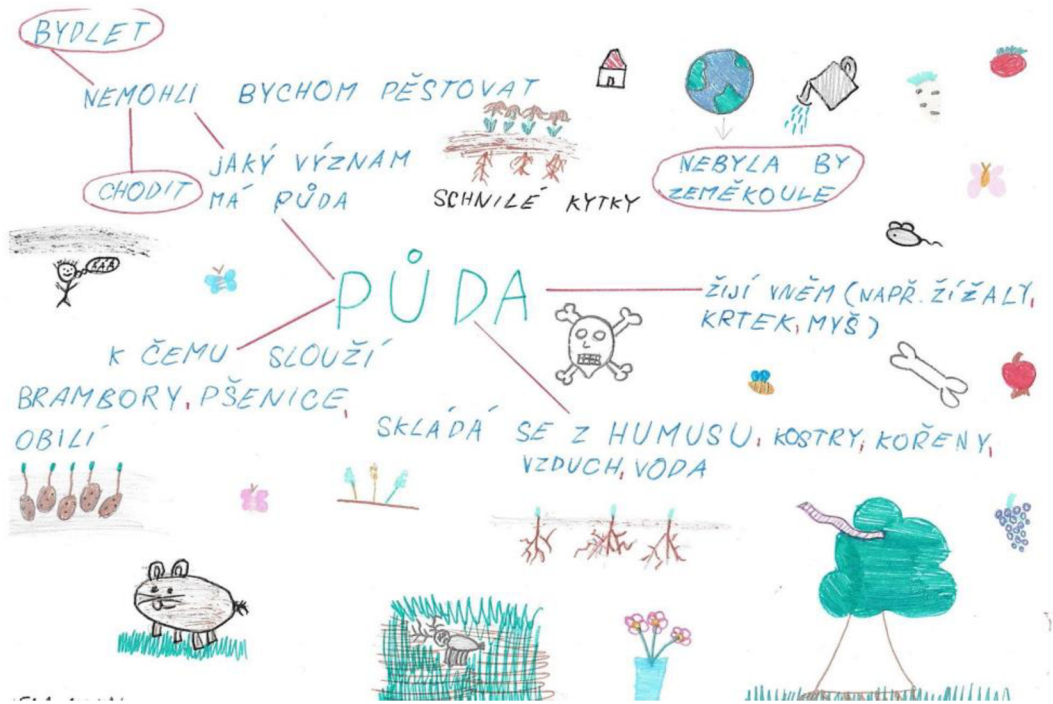 BYDLET
NEMOHLI BYCHOM PĚSTOVAT
CHODIT
JAKÝ VÝZNAM
MÁ PŮDA
SCHNILÉ KYTKY
NEBYLA BY
ZEMĚKOULE
ÁÁÁ
PŮDA
ŽIJÍ VNĚM (NAPŘ. ŽÍŽALY,
KRTEK, MYŠ)
K ČEMU SLOUŽÍ
BRAMBORY, PŠENICE,
OBILÍ
SKLÁDÁ SE Z HUMUSU, KOSTRY, KOŘENY,
VZDUCH, VODA